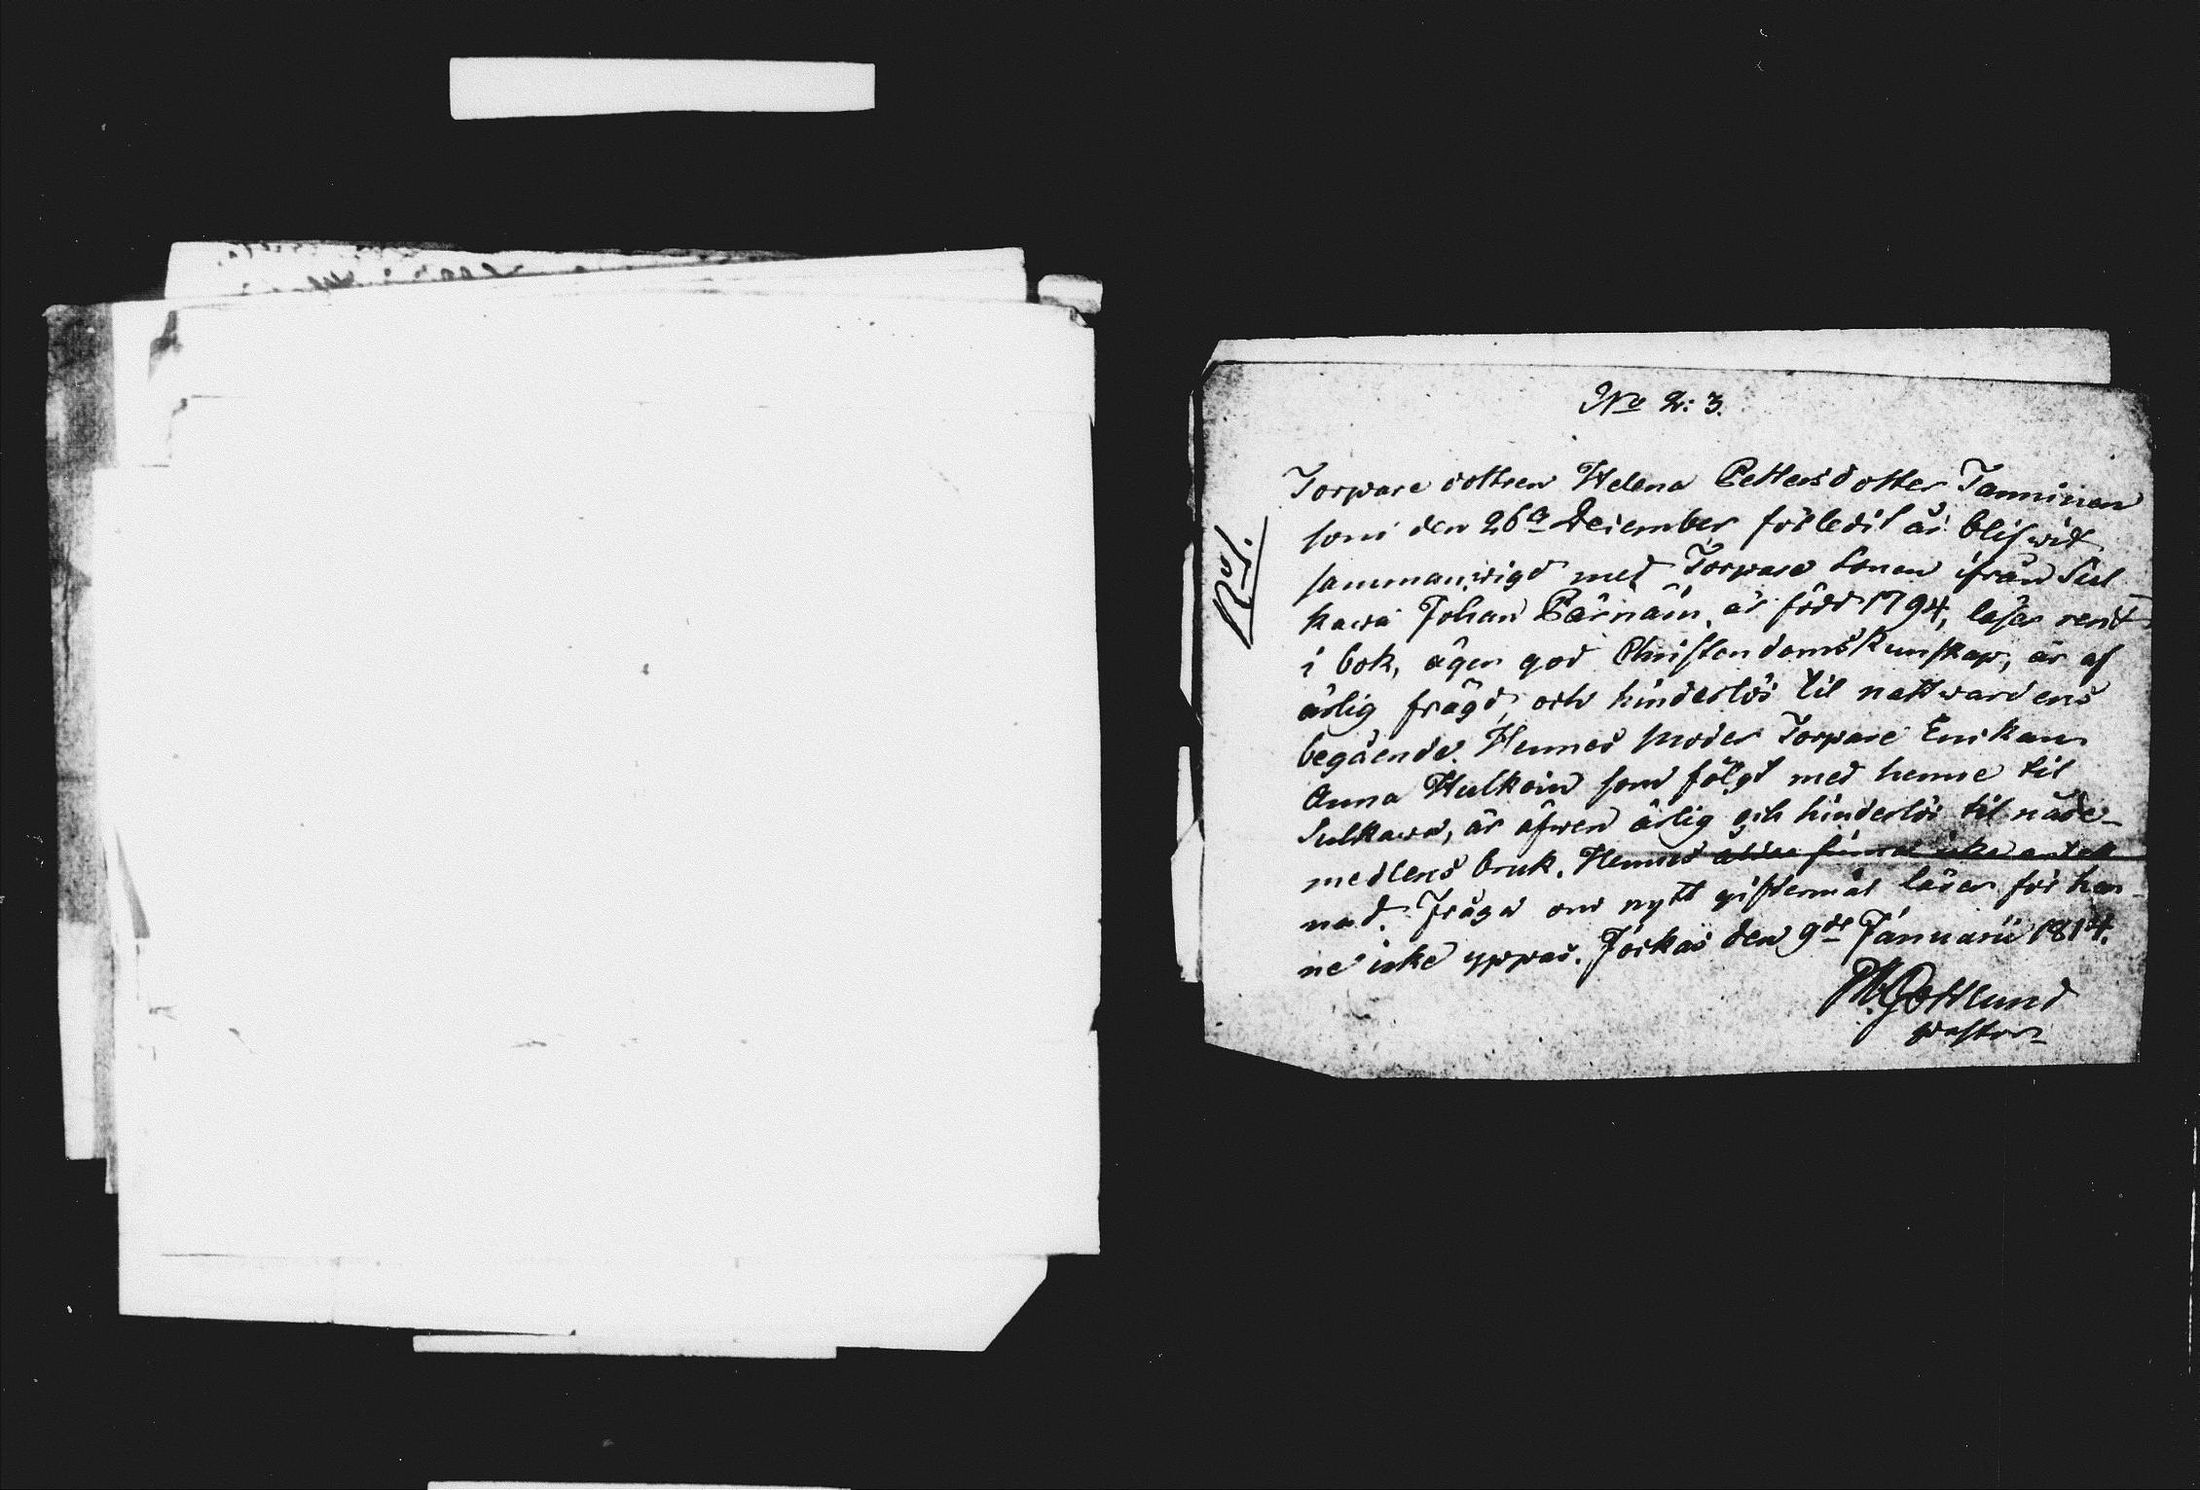 No 2: 3.
Torpare dottren Helena Pettersdotter Tanninen
som den 26a December förledit år blifwit
sammanwigd med Torpare Sonen ifrån Sul
kawa Johan Pärnäin, är född 1794, läser rent
i bok, äger god Christendomskunskap, är af
ärlig frägd, och hinderlös til nattwardens
begående. Hennes moder Torpare Enkan
Anna Hulkoin som fölgt med henne til
Sulkawa, är äfwen ärlig och hinderlös til nåde-
medlens bruk. Hennes ålder finnes icke anteck
nad. Fråga om nytt giftermål läser för hen-
ne icke yppas. Jockas den 9de Januarii 1814.
M. Gottlund
pastor